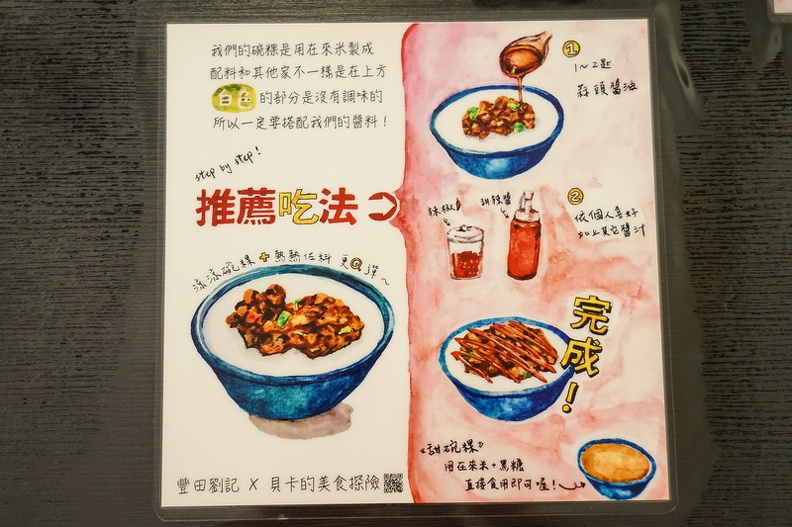 我們的碗粿是用在來米製成
配料和其他家不一樣是在上方
白色的部分是沒有調味的
所以一定要搭配我們的醬料！
step by step!
推薦吃法
涼涼碗粿+熱熱佐料 更Q彈~
豐田劉記 X 貝卡的美食探險
1
1~2匙
蒜頭醬油
辣椒
甜辣醬
2
依個人喜好
加上其它醬汁
完成！
《甜碗粿》
用在來米+黑糖
直接食用即可喔！